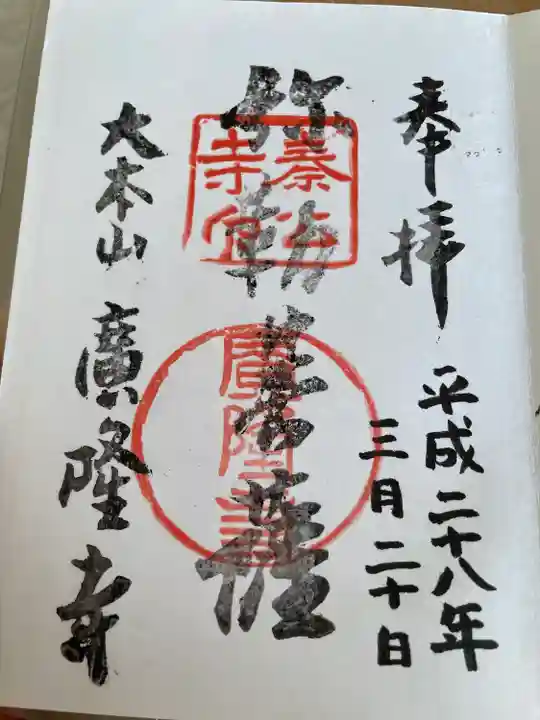 奉拝
平成二十八年
三月二十日
弥勒菩薩
秦公寺宜
廣隆寺
大本山 廣隆寺